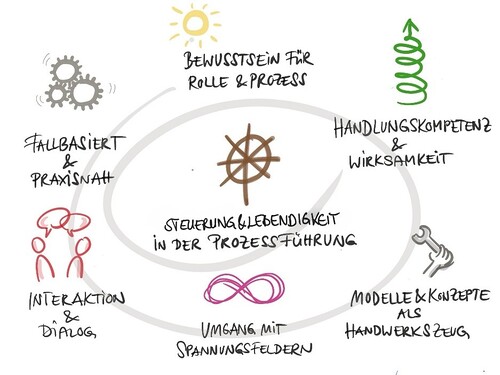 BEWUSSTSEIN FÜR
ROLLE & PROZESS
HANDLUNGSKOMPETENZ
&
WIRKSAMKEIT
FALLBASIERT
&
PRAXISNAH
STEUERUNG & LEBENDIGKEIT
IN DER PROZESSFÜHRUNG
INTERAKTION
&
DIALOG
UMGANG MIT
SPANNUNGSFELDERN
MODELLE & KONZEPTE
ALS
HANDWERKSZEUG